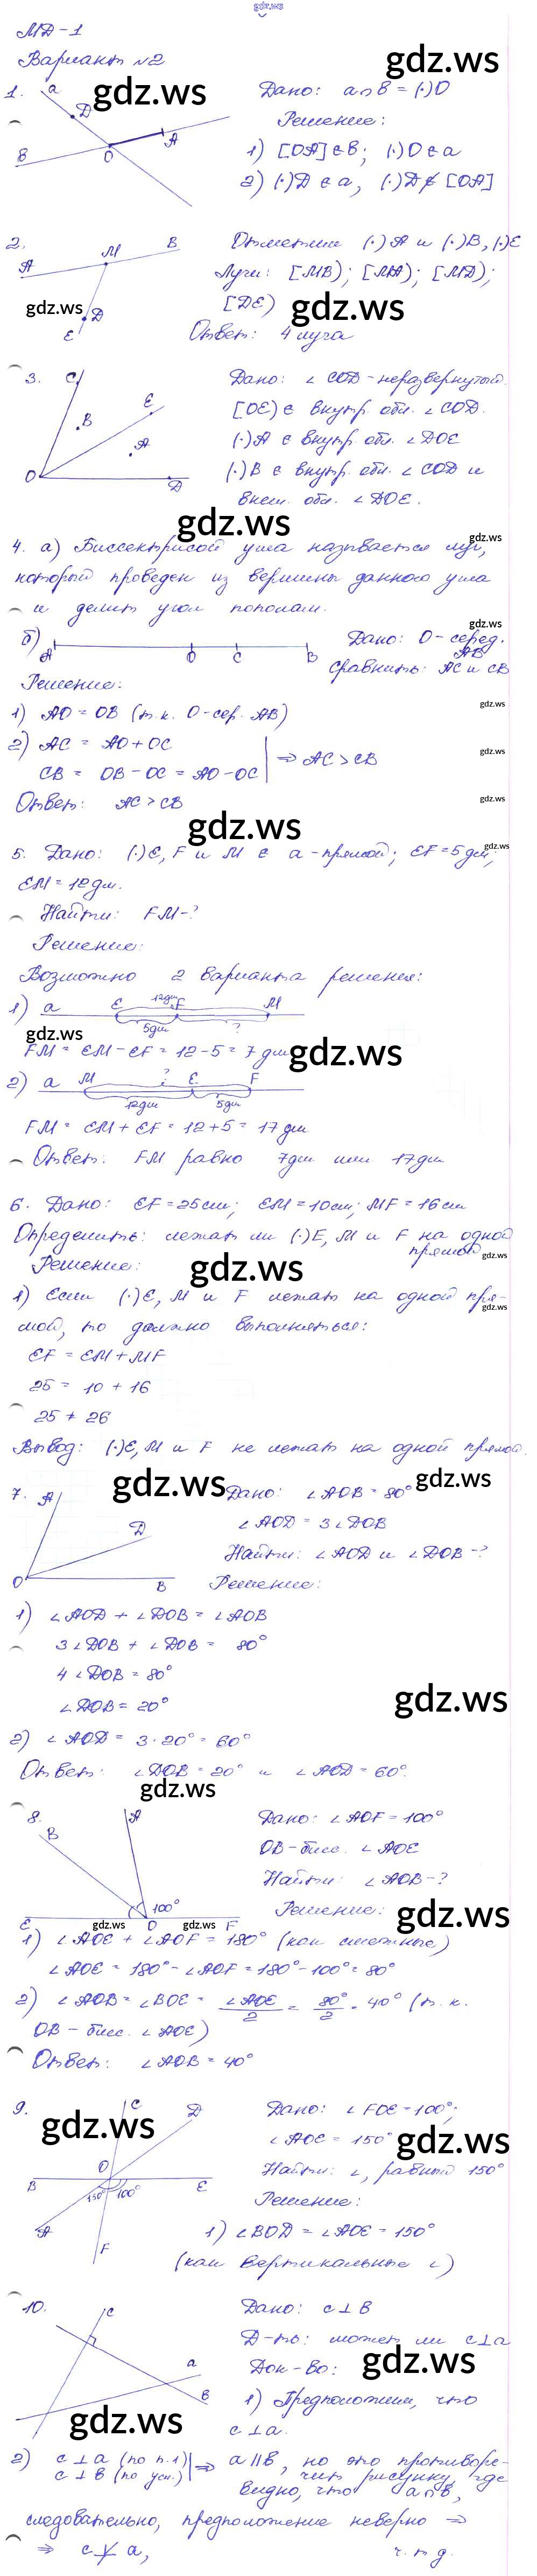 gdz.ws
МД-1
Вариант №2
gdz.ws
gdz.ws
1. a
Д
A
B
O
Дано: a∩B = (·)O
Решение:
1) [OA] ∈ B; (·)O ∈ a
2) (·)Д ∈ a, (·)Д ∉ [OA]
2.
A M B
Д
E
gdz.ws
Отметим (·)A и (·)B, (·)E
Лучи: [MB); [MA); [MД);
[ДE)
gdz.ws
Ответ: 4 луча
3. C
B
E
A
O
Д
Дано: ∠COД - неразвернутый.
[OE) ∈ внутр. обл. ∠COД.
(·)A ∈ внутр. обл. ∠ДOE
(·)B ∈ внутр. обл. ∠COД и
внеш. обл. ∠ДOE.
gdz.ws
4. а) Биссектрисой угла называется луч,
gdz.ws
который проведен из вершины данного угла
и делит угол пополам.
gdz.ws
б)
A O C B
Дано: O - серед. AB
Сравнить: AC и CB
Решение:
gdz.ws
1) AO = OB (т.к. O - сер. AB)
2) AC = AO + OC
CB = OB - OC = AO - OC
⇒ AC > CB
gdz.ws
Ответ: AC > CB
gdz.ws
gdz.ws
5. Дано: (·)E, F и M ∈ a - прямой; EF = 5 дм;
gdz.ws
EM = 12 дм.
Найти: FM - ?
Решение:
Возможно 2 варианта решения:
1) a E 12дм F M
5дм ?
gdz.ws
FM = EM - EF = 12 - 5 = 7 дм
gdz.ws
2) a M ? E F
12дм 5дм
FM = EM + EF = 12 + 5 = 17 дм
Ответ: FM равно 7дм или 17дм
6. Дано: EF = 25 см; EM = 10 см; MF = 16 см
Определить: лежат ли (·)E, M и F на одной
прямой
gdz.ws
Решение:
gdz.ws
1) Если (·)E, M и F лежат на одной пря-
gdz.ws
мой, то должно выполняться:
EF = EM + MF
25 = 10 + 16
25 ≠ 26
Вывод: (·)E, M и F не лежат на одной прямой.
gdz.ws
gdz.ws
7. A
Д
O B
Дано: ∠AOB = 80°
∠AOД = 3∠ДOB
Найти: ∠AOД и ∠ДOB - ?
Решение:
1) ∠AOД + ∠ДOB = ∠AOB
3∠ДOB + ∠ДOB = 80°
4∠ДOB = 80°
gdz.ws
∠ДOB = 20°
2) ∠AOД = 3·20° = 60°
Ответ: ∠ДOB = 20° и ∠AOД = 60°.
gdz.ws
8. A
B
100°
E O F
gdz.ws
gdz.ws
Дано: ∠AOF = 100°
OB - бисс. ∠AOE
Найти: ∠AOB - ?
Решение:
gdz.ws
1) ∠AOE + ∠AOF = 180° (как смежные)
∠AOE = 180° - ∠AOF = 180° - 100° = 80°
2) ∠AOB = ∠BOE = ∠AOE/2 = 80°/2 = 40° (т.к.
OB - бисс. ∠AOE)
Ответ: ∠AOB = 40°
9. C
Д
gdz.ws
O
B E
150° 100°
A
F
Дано: ∠FOE = 100°;
∠AOE = 150°
gdz.ws
Найти: ∠, равный 150°
Решение:
1) ∠BOД = ∠AOE = 150°
(как вертикальные ∠)
10. C
a
B
gdz.ws
Дано: c ⊥ B
Д-ть: может ли c ⊥ a
Док-во:
gdz.ws
1) Предположим, что
c ⊥ a.
2) c ⊥ a (по п.1)
c ⊥ B (по усл.)
⇒ a ∥ B, но это противоре-
чит рисунку, где
видно, что a∩B,
следовательно, предположение неверно ⇒
⇒ c ⊥̸ a,
ч.т.д.